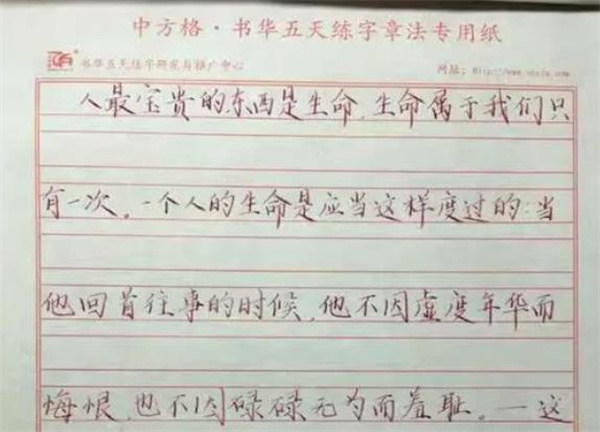 中方格·书华五天练字章法专用纸
书华五天练字研究与推广中心
网址:
人最宝贵的东西是生命,生命属于我们只
有一次。一个人的生命是应当这样度过的:当
他回首往事的时候,他不因虚度年华而
悔恨,也不因碌碌无为而羞耻。一这